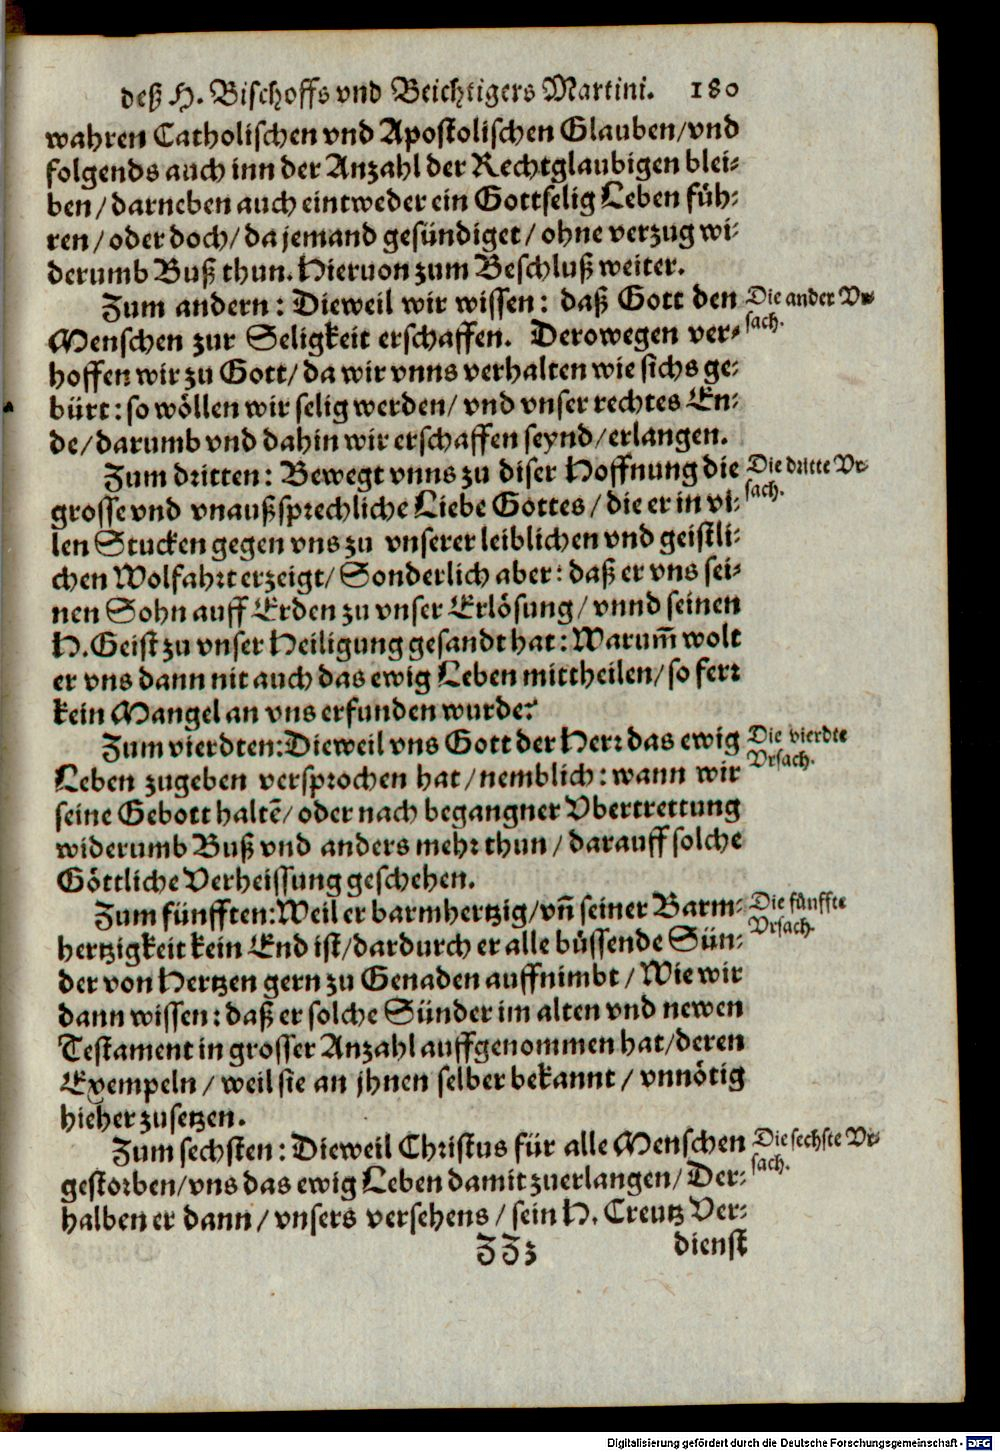 deß H. Bischoffs vnd Beichtigers Martini. 180
wahren Catholischen vnd Apostolischen Glauben/vnd
folgends auch inn der Anzahl der Rechtglaubigen blei-
ben/darneben auch eintweder ein Gottselig Leben füh-
ren/oder doch/da jemand gesündiget/ohne verzug wi-
derumb Buß thun. Hieruon zum Beschluß weiter.
Zum andern: Dieweil wir wissen: daß Gott den
Menschen zur Seligkeit erschaffen. Derowegen ver-
hoffen wir zu Gott/da wir vnns verhalten wie sichs ge-
bürt: so wöllen wir selig werden/vnd vnser rechtes En-
de/darumb vnd dahin wir erschaffen seynd/erlangen.
Die ander Vr-
sach.
Zum dritten: Bewegt vnns zu diser Hoffnung die
grosse vnd vnaußsprechliche Liebe Gottes/die er in vi-
len Stucken gegen vns zu vnserer leiblichen vnd geistli-
chen Wolfahrt erzeigt/Sonderlich aber: daß er vns sei-
nen Sohn auff Erden zu vnser Erlösung/vnnd seinen
H. Geist zu vnser Heiligung gesandt hat: Warum̃ wolt
er vns dann nit auch das ewig Leben mittheilen/so ferr
kein Mangel an vns erfunden wurde?
Die dritte Vr-
sach.
Zum vierdten: Dieweil vns Gott der Herr das ewig
Leben zugeben versprochen hat/nemblich: wann wir
seine Gebott haltẽ/oder nach begangner Vbertrettung
widerumb Buß vnd anders mehr thun/darauff solche
Göttliche Verheissung geschehen.
Die vierdte
Vrsach.
Zum fünfften: Weil er barmhertzig/vn̄ seiner Barm-
hertzigkeit kein End ist/dardurch er alle büssende Sün-
der von Hertzen gern zu Genaden auffnimbt/Wie wir
dann wissen: daß er solche Sünder im alten vnd newen
Testament in grosser Anzahl auffgenommen hat/deren
Exempeln/weil sie an jhnen selber bekannt/vnnötig
hieher zusetzen.
Die fünffte
Vrsach.
Zum sechsten: Dieweil Christus für alle Menschen
gestorben/vns das ewig Leben damit zuerlangen/Der-
halben er dann/vnsers versehens/sein H. Creutz Ver-
Die sechste Vr-
sach.
ZZ3 dienst
Digitalisierung gefördert durch die Deutsche Forschungsgemeinschaft - DFG